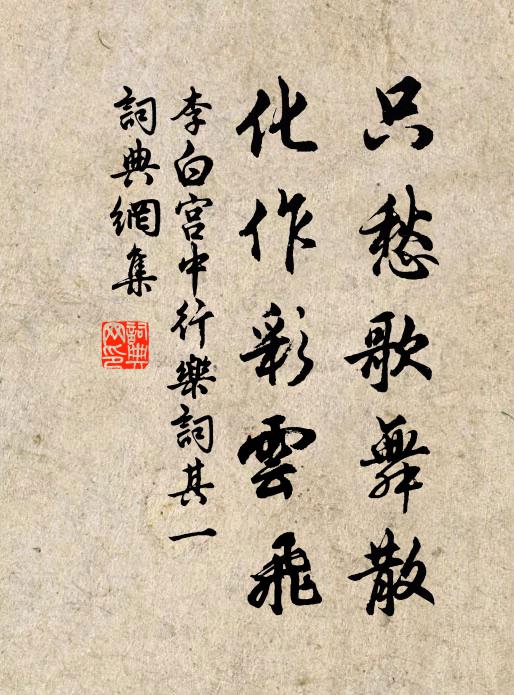 只愁歌舞散
化作彩雲飛
李白宮中行樂詞其一
詞典網集
詞典網印